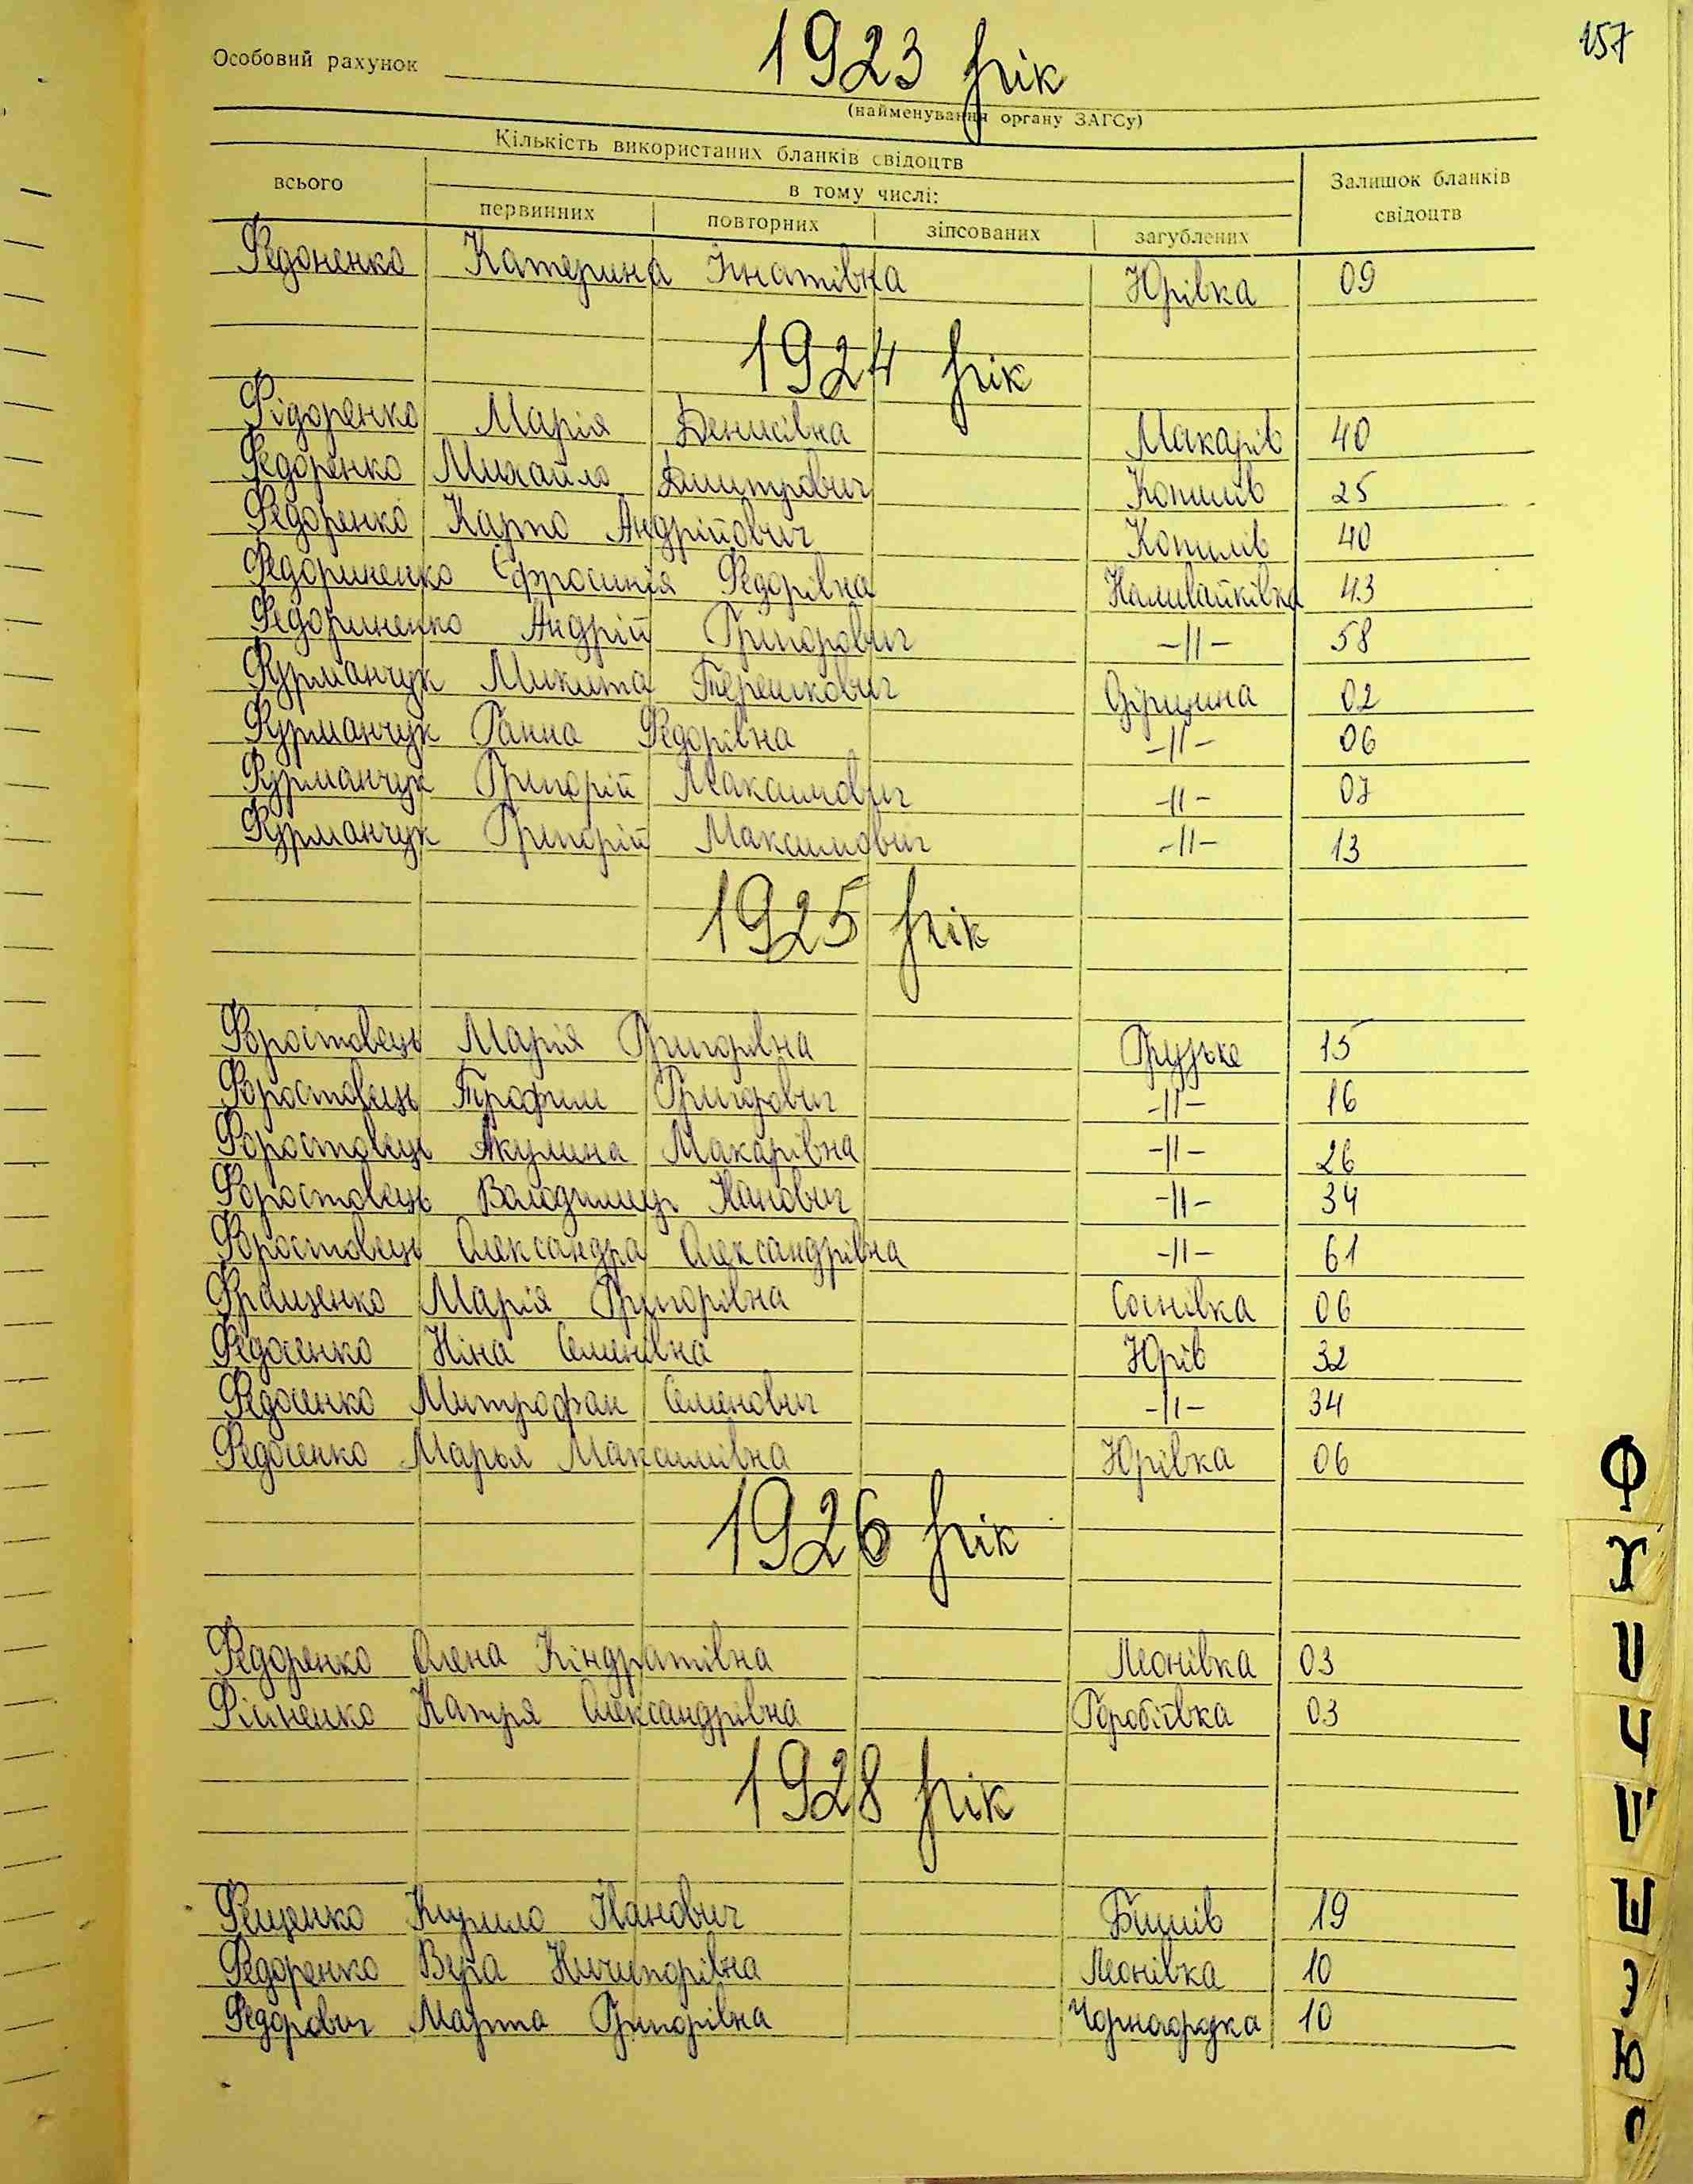 157
Особовий рахунок 1923 рік
(найменування органу ЗАГСу)
Кількість використаних бланків свідоцтв
всього в тому числі: Залишок бланків свідоцтв
первинних повторних зіпсованих загублених
Федоненко Катерина Ігнатівна Юрівка 09
1924 рік
Фідоренко Марія Денисівна Макарів 40
Федоренко Михайло Дмитрович Копилів 25
Федоренко Карпо Андрійович Копилів 40
Федориненко Єфросинія Федорівна Наливайківка 43
Федориненко Андрій Григорович -11- 58
Фурманчук Микита Терешкович 02
Фурманчук Ганна Федорівна -11- 06
Фурманчук Григорій Максимович -11- 07
Фурманчук Григорій Максимович -11- 13
1925 рік
Форостовець Марія Григорівна Грузьке 15
Форостовець Трофим Григорович -11- 16
Форостовець Акулина Макарівна -11- 26
Форостовець Володимир -11- 34
Форостовець Олександра Олександрівна -11- 61
Фращенко Марія Григорівна Соснівка 06
Федосенко Ніна Семенівна Юрів 32
Федосенко Митрофан Семенович -11- 34
Федосенко Марья Максимівна Юрівка 06
1926 рік
Федоренко Олена Кіндратівна Леонівка 03
Катря Олександрівна Горобіївка 03
1928 рік
Фещенко Кирило Іванович Бишів 19
Федоренко Вера Ничипорівна Леонівка 10
Федорович Марта Григорівна Чорногородка 10
Ф
Х
Ц
Ч
Ш
Щ
Э
Ю